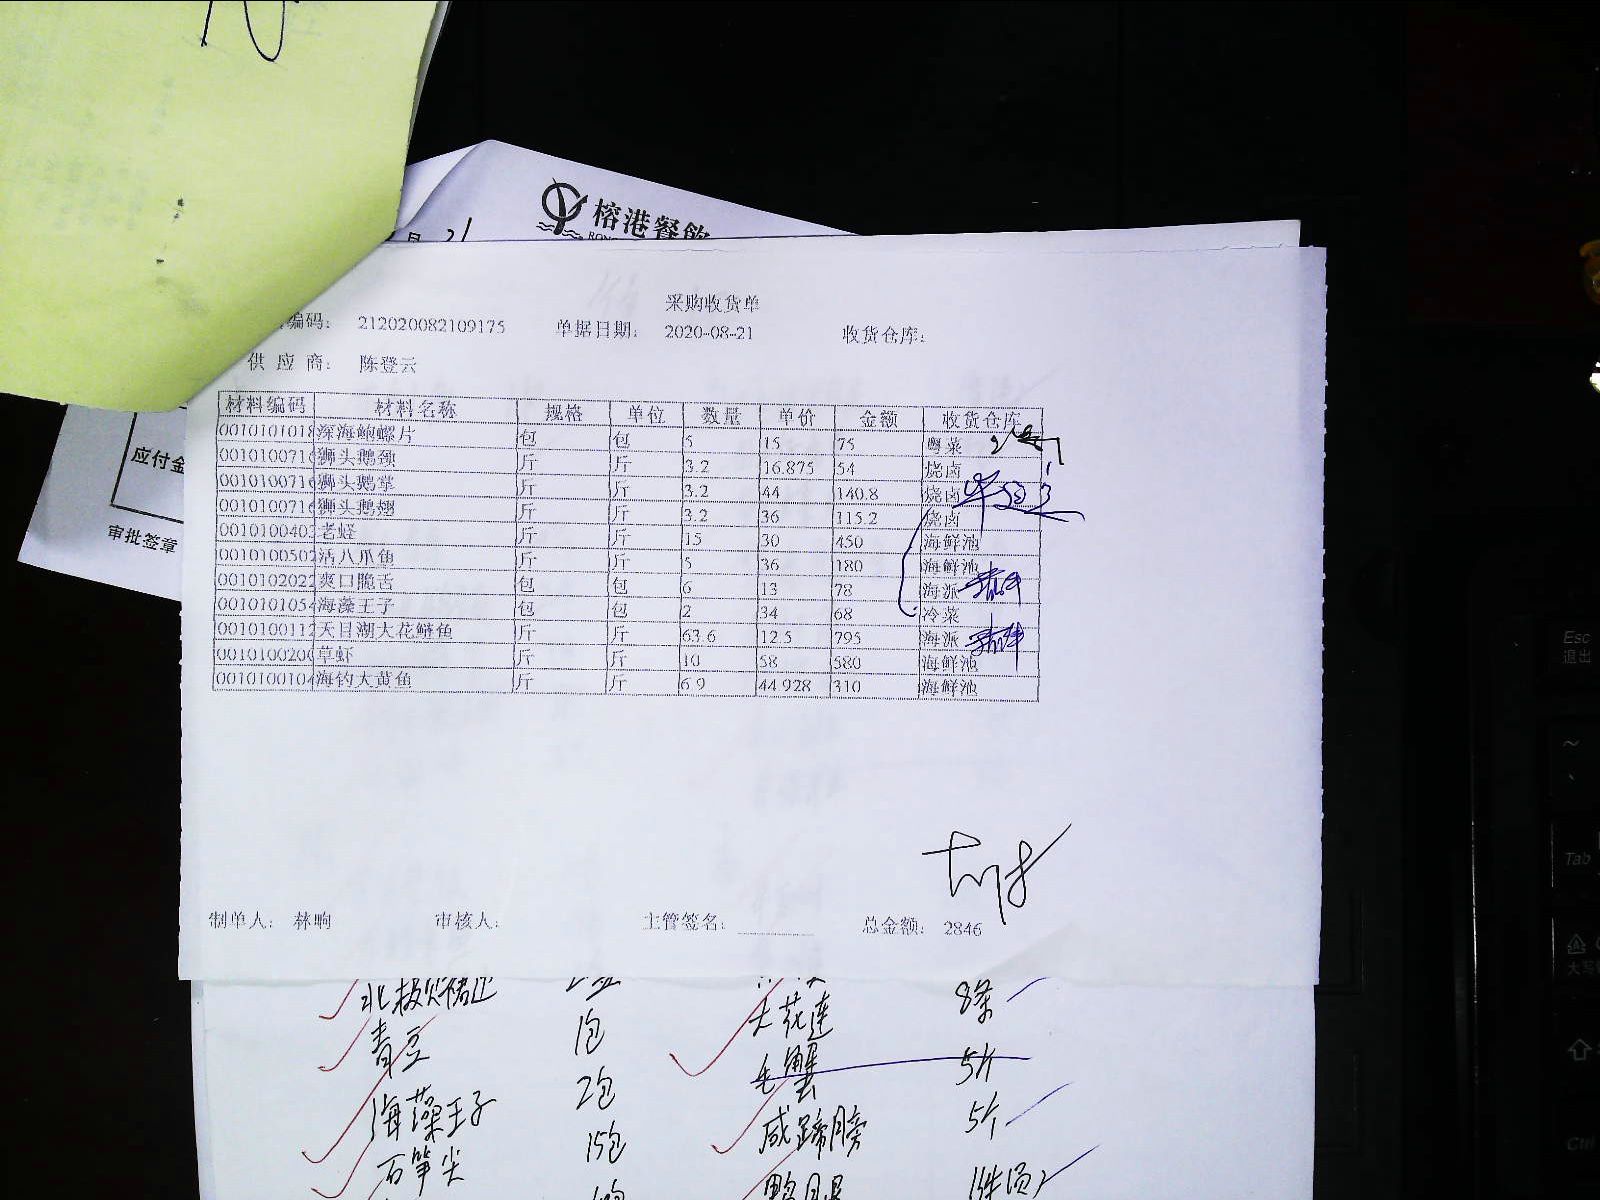 榕港餐飲
月 21
采购收货单
编码： 212020082109175 单据日期： 2020-08-21 收货仓库：
供 应 商： 陈登云
材料编码 材料名称 规格 单位 数量 单价 金额 收货仓库
0010101018 深海鲍螺片 包 包 5 15 75 粤菜
001010071 狮头鹅颈 斤 斤 3.2 16.875 54 烧卤
001010071 狮头鹅掌 斤 斤 3.2 44 140.8 烧卤
001010071 狮头鹅翅 斤 斤 3.2 36 115.2 烧卤
001010040 老蛏 斤 斤 15 30 450 海鲜池
001010050 活八爪鱼 斤 斤 5 36 180 海鲜池
0010102022 爽口脆舌 包 包 6 13 78 海派
001010105 海藻王子 包 包 2 34 68 冷菜
001010011 天目湖大花鲢鱼 斤 斤 63.6 12.5 795 海派
001010020 草虾 斤 斤 10 58 580 海鲜池
001010010 海钓大黄鱼 斤 斤 6.9 44.928 310 海鲜池
应付金
审批签章
制单人： 林昫 审核人： 主管签名： 总金额： 2846
大花莲 8条
青豆 1包
毛蟹 5斤
海藻王子 2包
咸蹄膀 5个
石笋尖 15包
Esc
退出
Tab
Ctrl